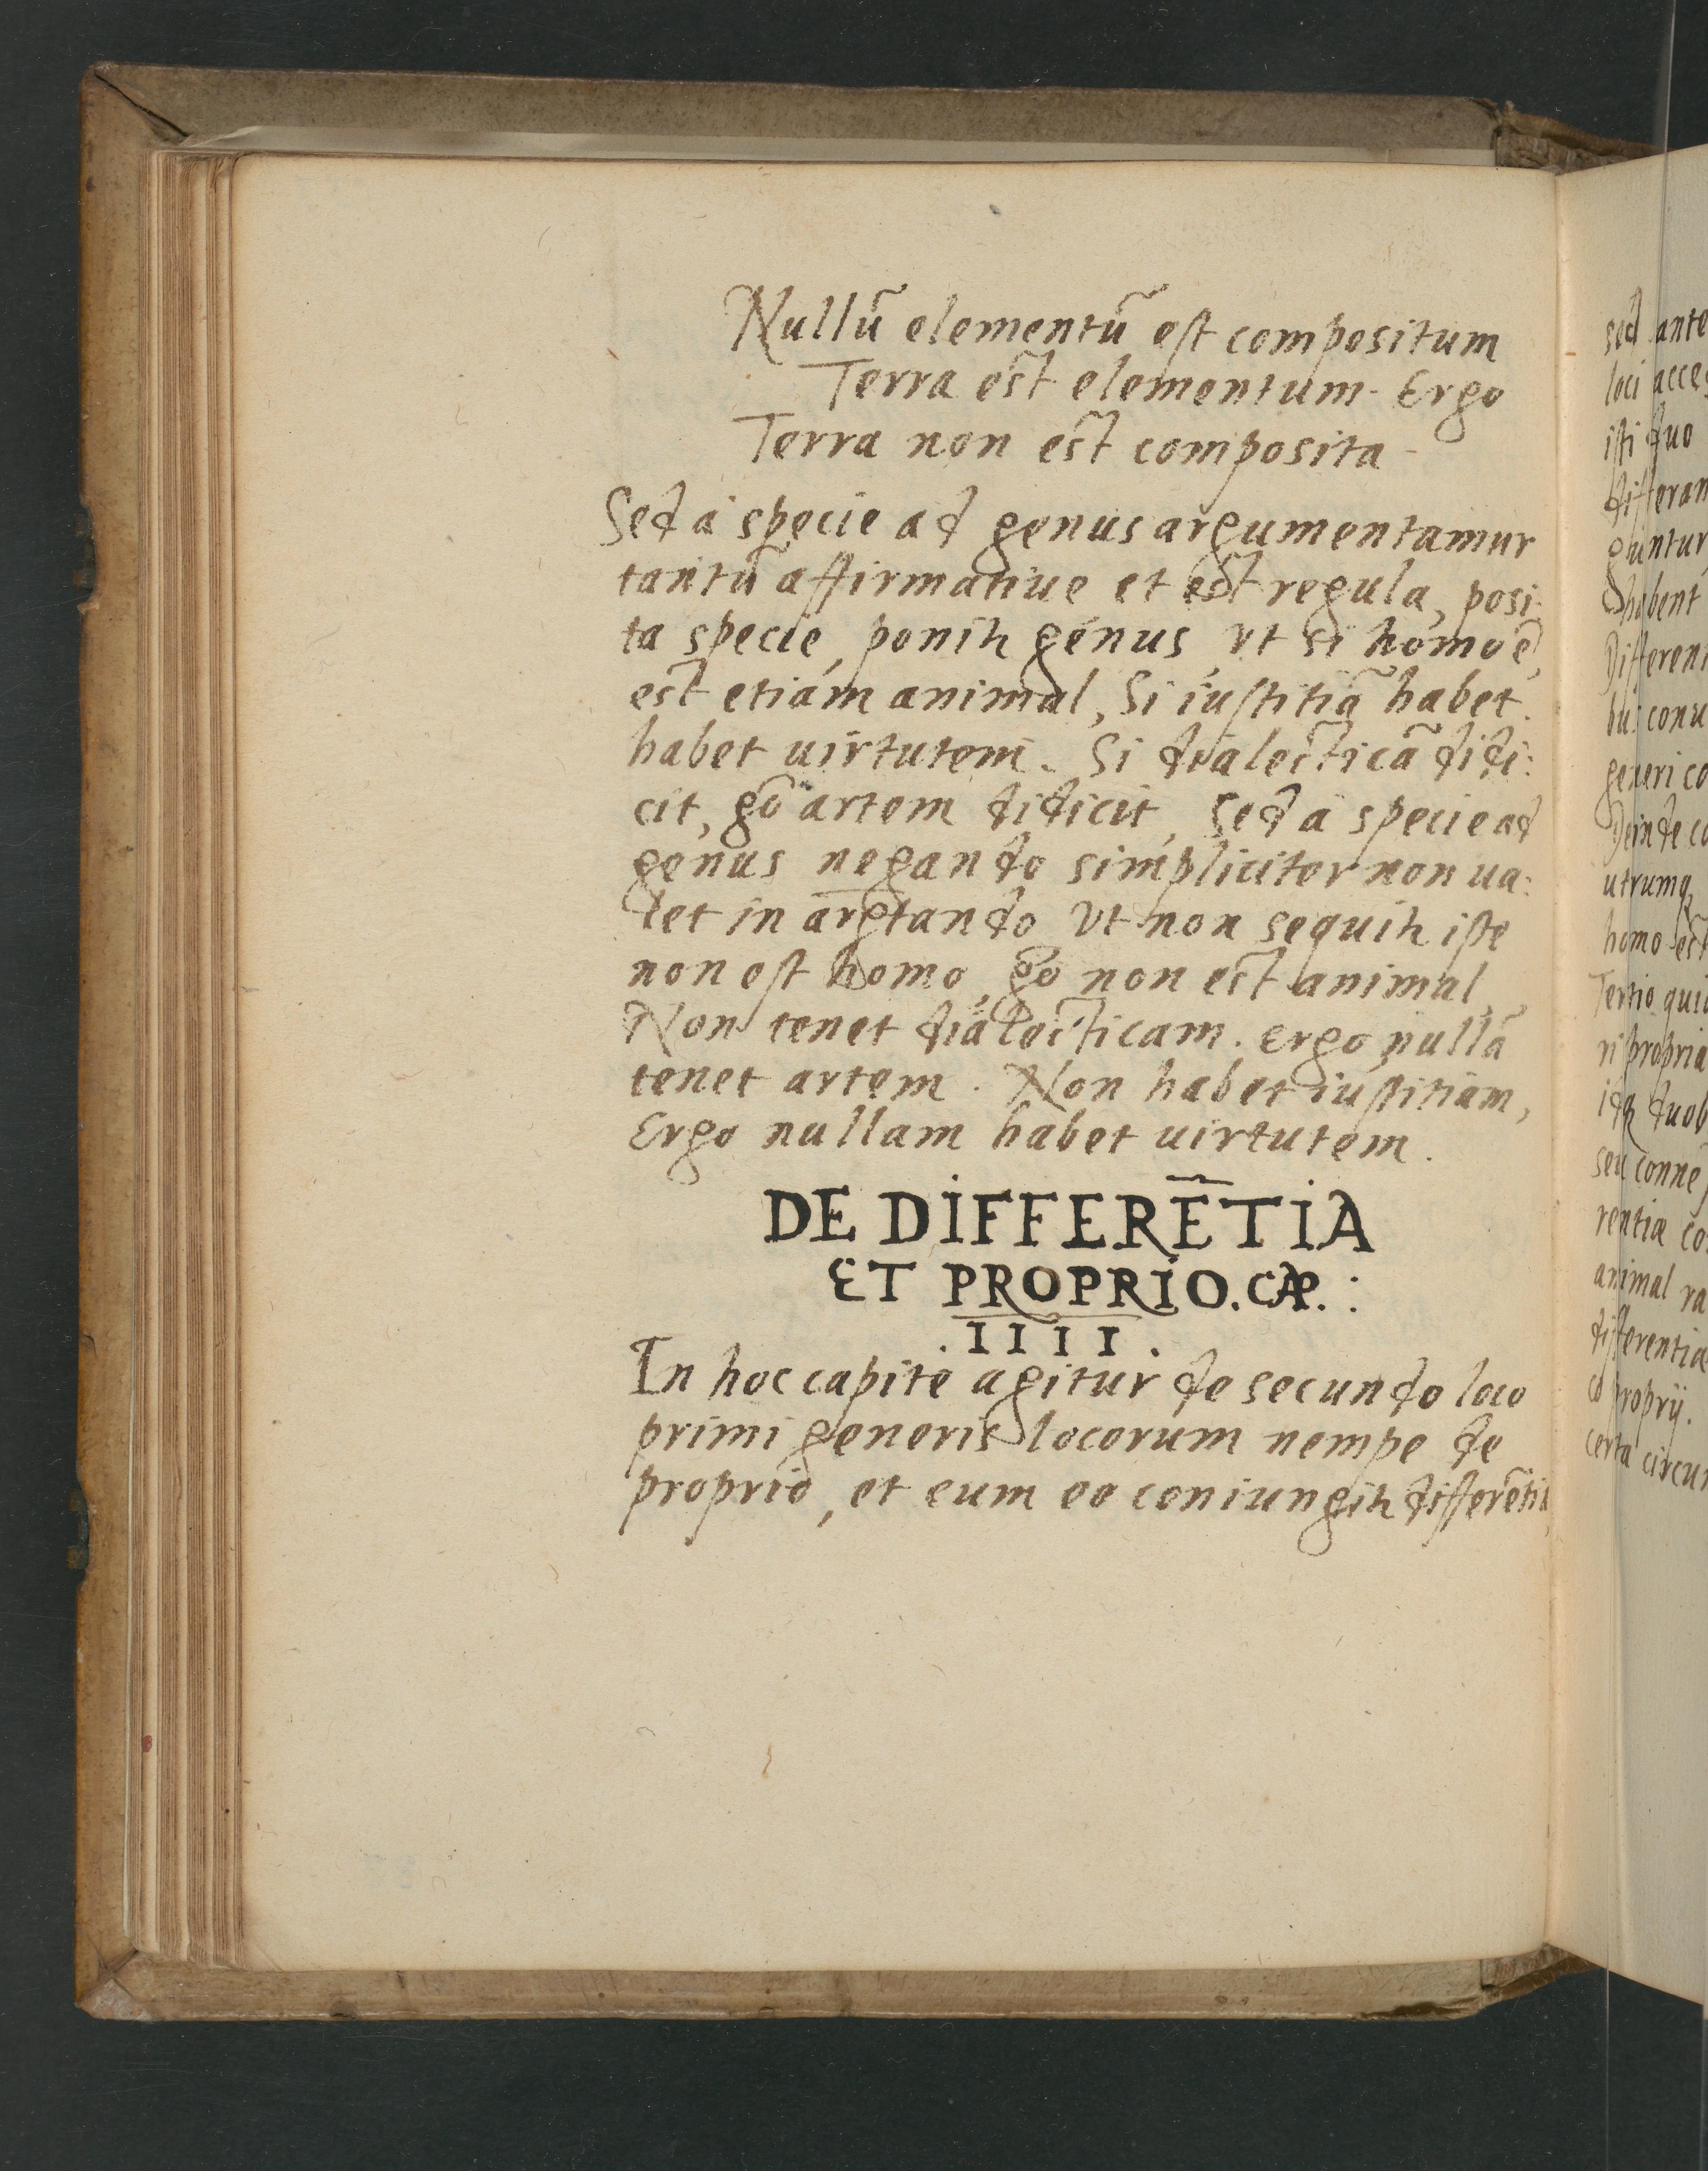 Nullũ elementũ est compositum
Terra est elementum. Ergo
Terra non est composita
Sed a specie ad genus argumentamur
tantũ affirmatiue et est regula, posi:
ta specie, ponitr genus, vt si homo ẽ,
est etiam animal, Si iustitiã habet.
habet uirtutem. Si dialecticã didi:
cit, gõ artem didicit, Sed a specie ad
genus negando simpliciter non ua:
let in argtando Vt non sequitr iste
non est homo, gõ non est animal,
Non tenet dialecticam. Ergo nullã
tenet artem. Non habet iustitiam,
Ergo nullam habet uirtutem.
DE DIFFERẼTIA
ET PROPRIO. CAP. :
. IIII .
In hoc capite agitur de secundo loco
primi generis locorum nempe de
proprio, et cum eo coniungitr differẽtia
sed ante
loci
isti duo
habent
generi
Deinde
utrumq
homo est
Tertio
rentiæ
animal
differentiæ
proprij.
certa